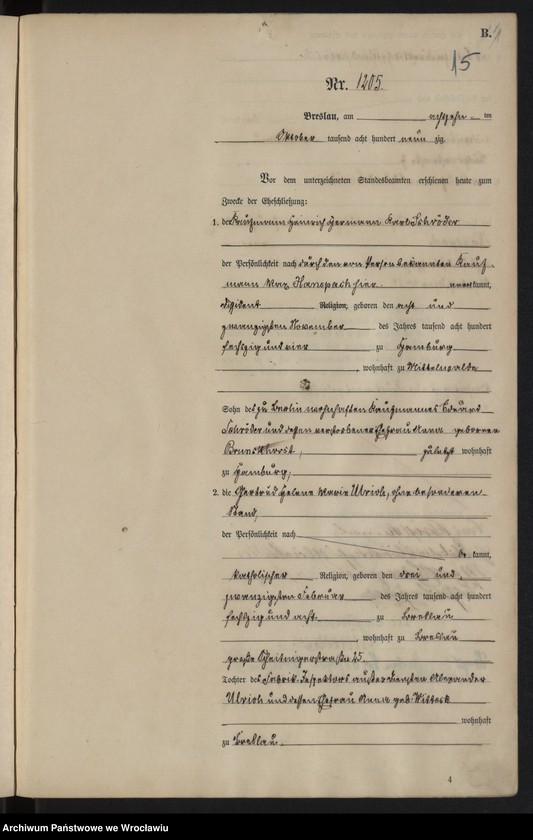 B.
15
Nr. 1205.
Breslau, am achtzehn ten
Oktober tausend acht hundert neun zig.
Vor dem unterzeichneten Standesbeamten erschienen heute zum
Zwecke der Eheschließung:
1. der Kaufmann Heinrich Hermann Karl Schröder
der Persönlichkeit nach durch den von Person bekannten Kauf-
mann Max Hanspach hier anerkannt,
Dissident Religion, geboren den acht und
zwanzigsten November des Jahres tausend acht hundert
sechszig und vier zu Hamburg
, wohnhaft zu Mittelwalde
Sohn des zu Berlin wohnhaften Kaufmannes Eduard
Schröder und dessen verstorbener Ehefrau Anna geborenen
zuletzt wohnhaft
zu Hamburg,
2. die Gertrud Helene Marie Ulrich, ohne besonderen
Stand,
der Persönlichkeit nach
be kannt,
katholischer Religion, geboren den drei und
zwanzigsten Februar des Jahres tausend acht hundert
sechszig und acht zu Breslau
, wohnhaft zu Breslau
große Scheitnigerstraße 25.
Tochter des Fabrik-Inspektors außer Diensten Alexander
Ulrich und dessen Ehefrau Anna geb. Witteck
wohnhaft
zu Breslau.
4
Archiwum Państwowe we Wrocławiu